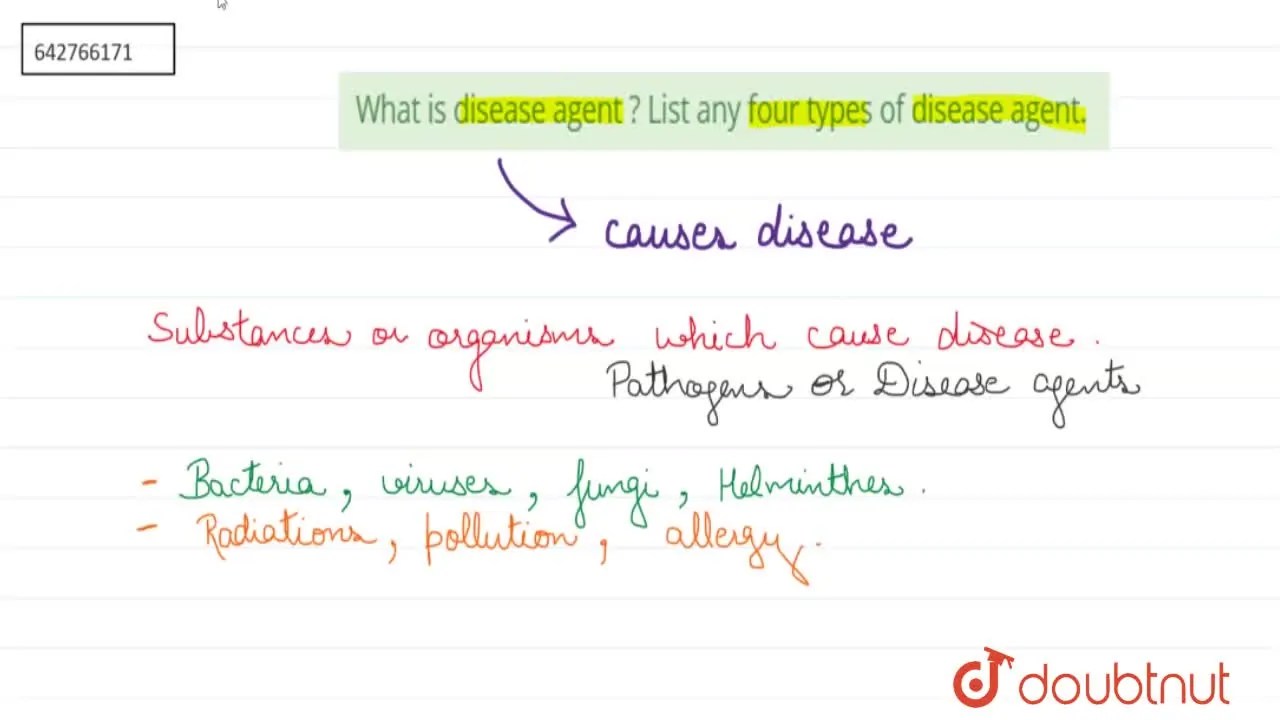 642766171
What is disease agent ? List any four types of disease agent.
causes disease
Substances or organisms which cause disease.
Pathogens or Disease agents
- Bacteria, viruses, fungi, Helminthes.
- Radiations, pollution, allergy.
doubtnut